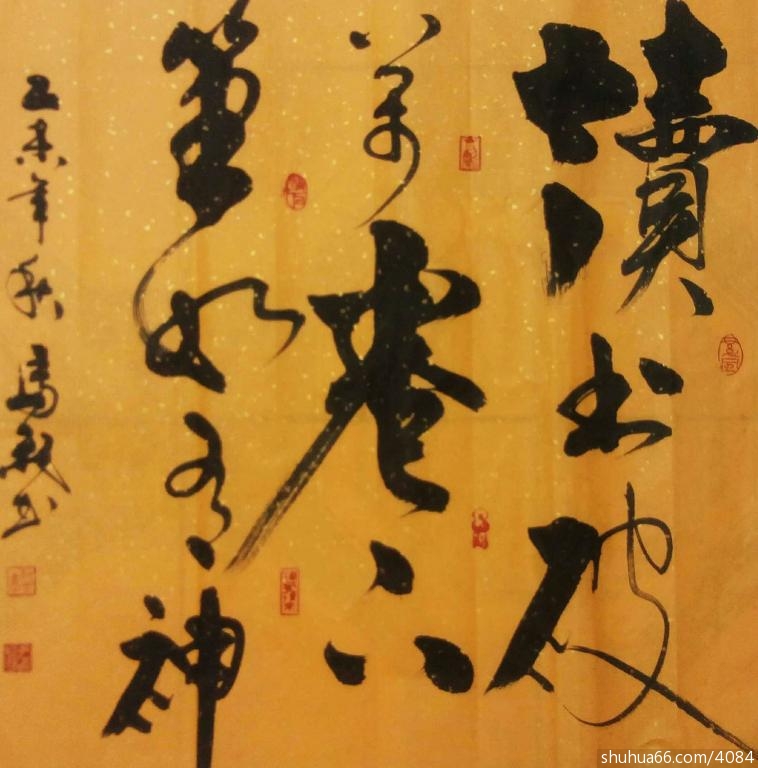 讀書破
萬卷下
筆如有神
乙未年秋
shuhua66.com/4084